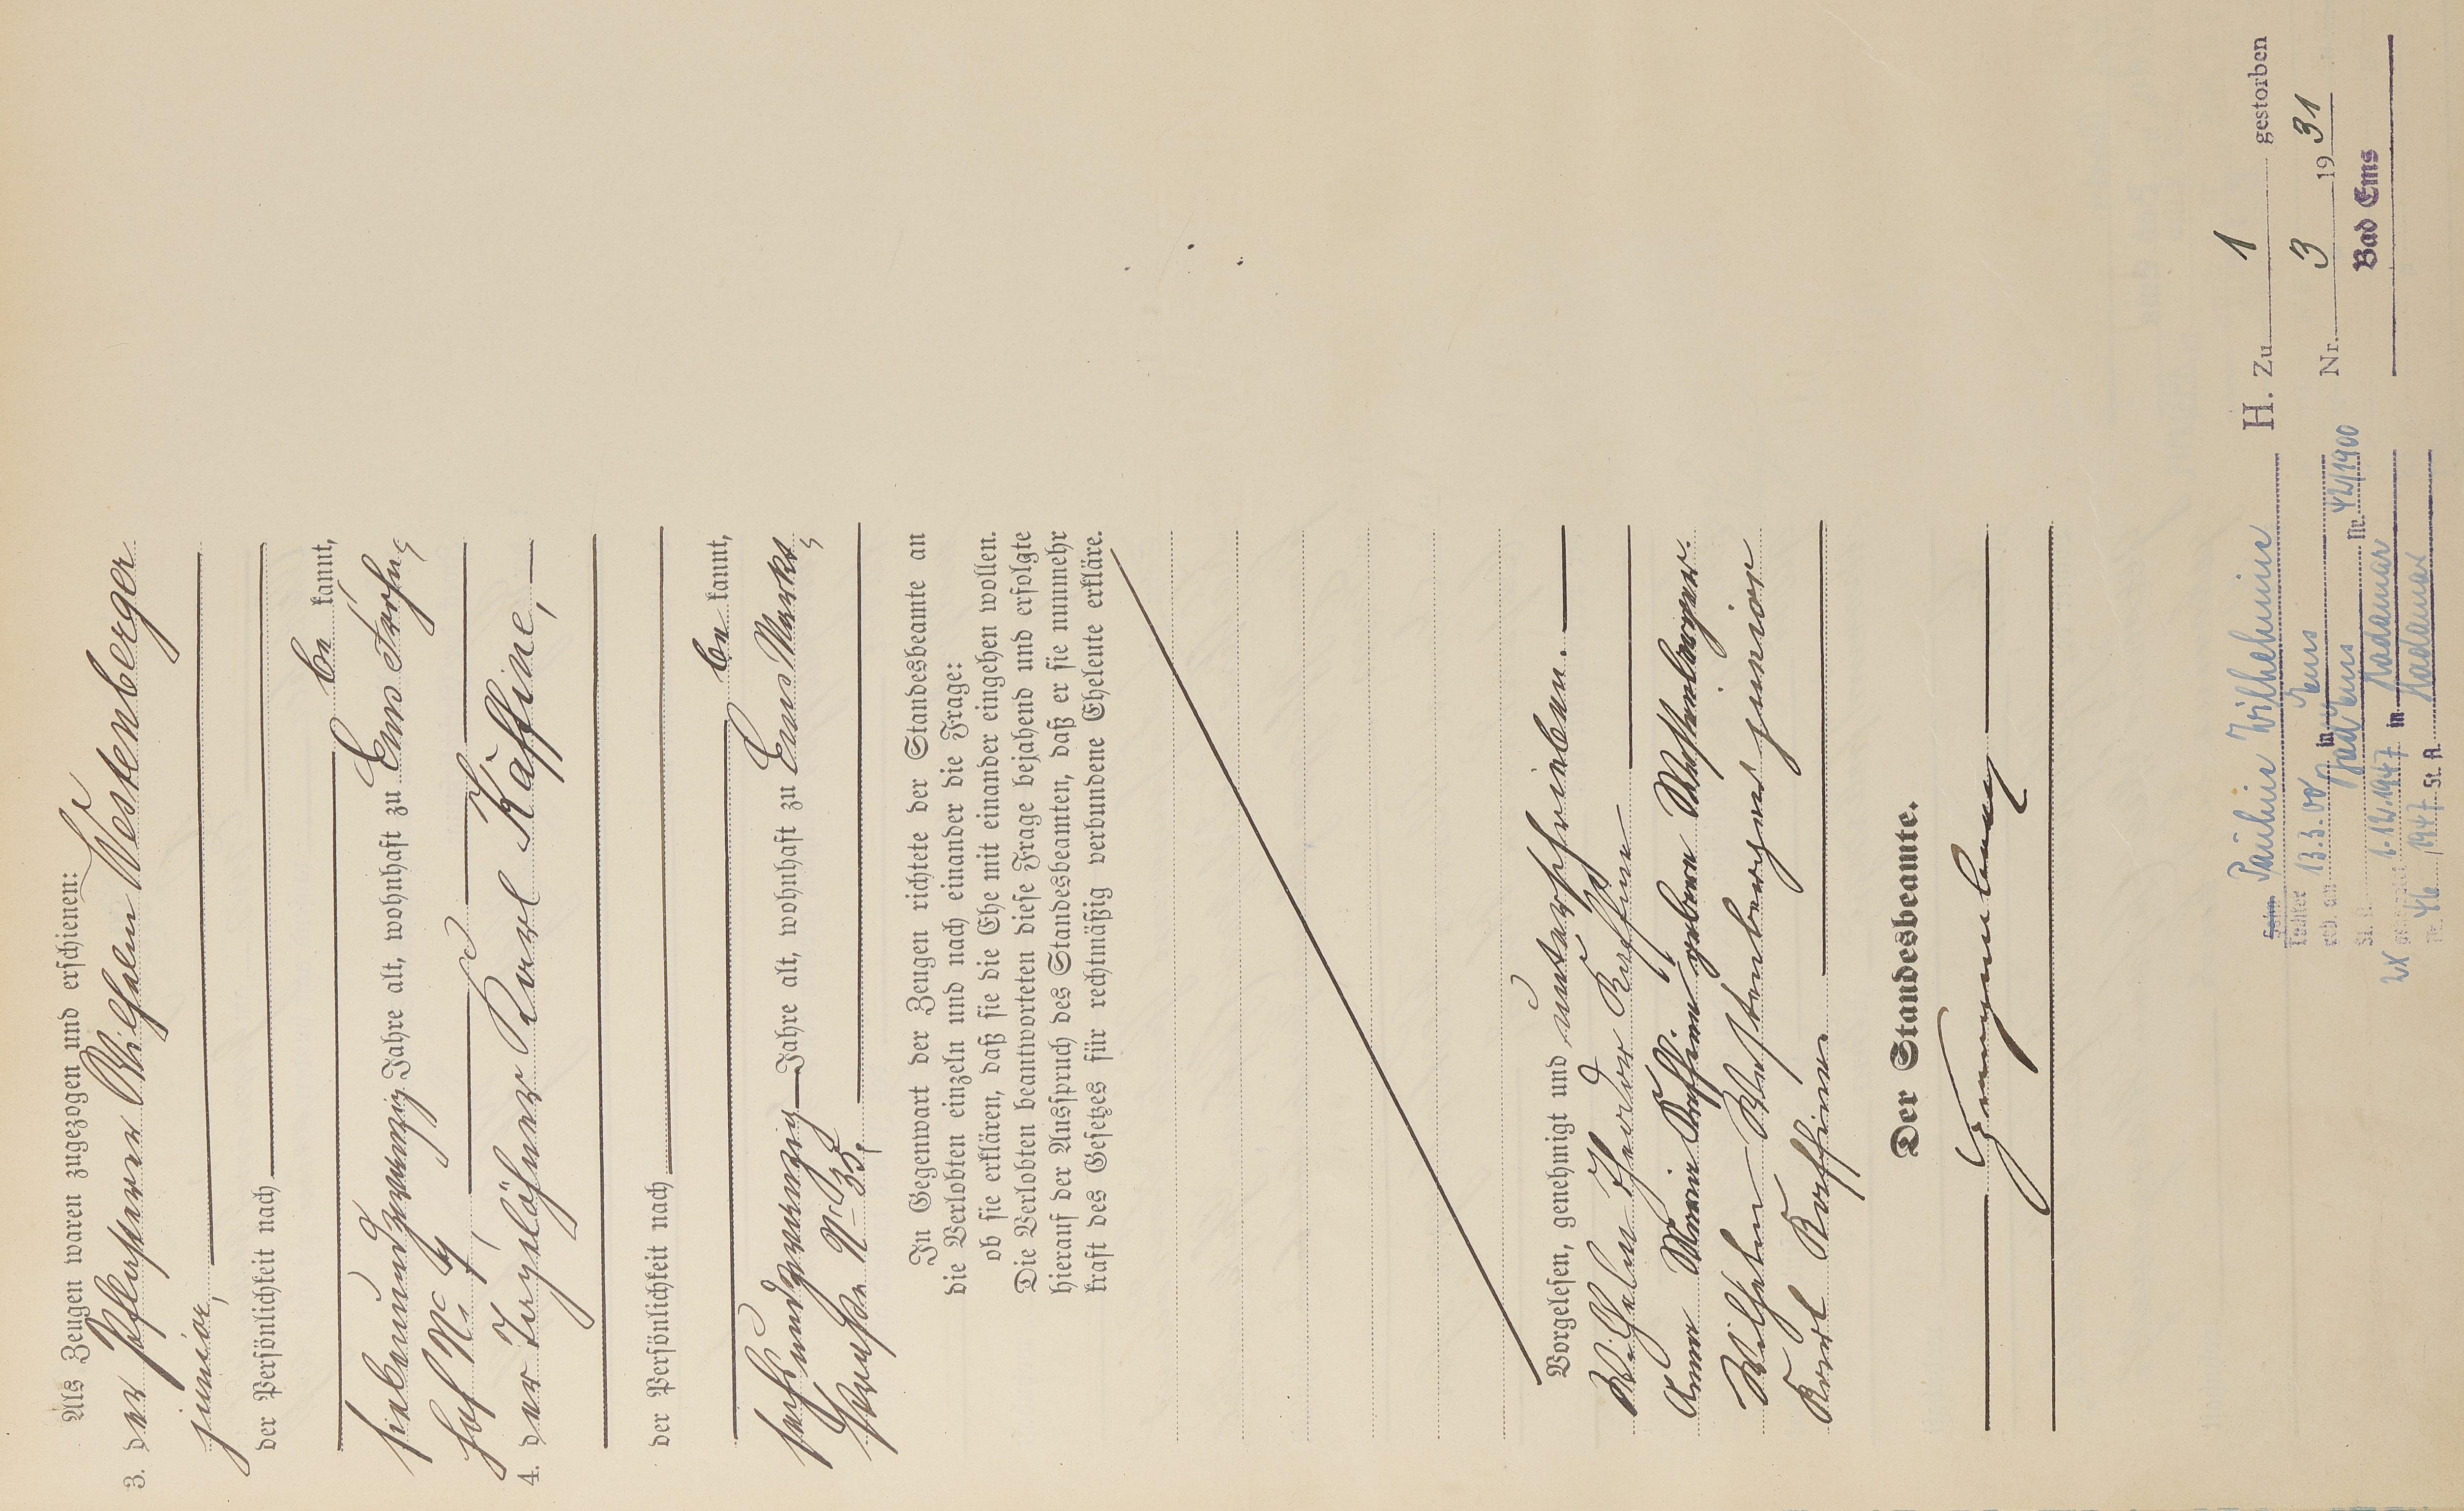 Als Zeugen waren zugezogen und erschienen:
3. der Pflasterer Wilhelm Westenberger
junior,
der Persönlichkeit nach
be kannt,
siebenundzwanzig Jahre alt, wohnhaft zu Ems
hof No 4,
4. der Tagelöhner Karl Kaffine,
der Persönlichkeit nach
be kannt,
sechsundzwanzig Jahre alt, wohnhaft zu Ems Markt
straße No 35.
In Gegenwart der Zeugen richtete der Standesbeamte an
die Verlobten einzeln und nach einander die Frage:
ob sie erklären, daß sie die Ehe mit einander eingehen wollen.
Die Verlobten beantworteten diese Frage bejahend und erfolgte
hierauf der Ausspruch des Standesbeamten, daß er sie nunmehr
kraft des Gesetzes für rechtmäßig verbundene Eheleute erkläre.
Vorgelesen, genehmigt und unterschrieben.
Wilhelm Theodor Kaffine
Anna Maria Kaffine geboren Westenberger.
Wilhelm Westenberger junior
Karl Kaffine
Der Standesbeamte.
Sohn Pauline Wilhelmine
Tochter
geb. am 13.3.00 in Ems
St. A. Bad Ems Nr. 42/1900
2x geheiratet 6.12.1947 in Hadamar
Nr. 46/1947 St. A. Hadamar
H. Zu 1 gestorben
Nr. 3 1931
Bad Ems